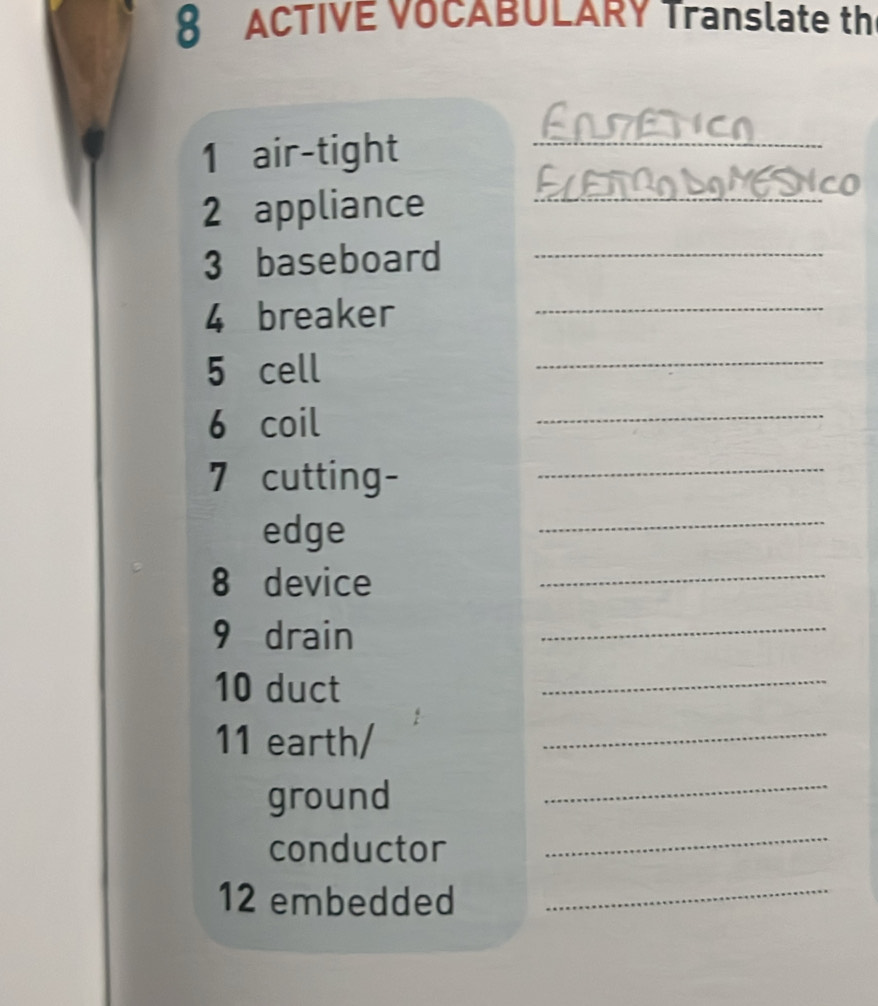 8 ACTIVE VOCABULARY Translate th
1 air-tight
2 appliance ELETTRODOMESTICO
3 baseboard
4 breaker
5 cell
6 coil
7 cutting-
edge
8 device
9 drain
10 duct
11 earth/
ground
conductor
12 embedded